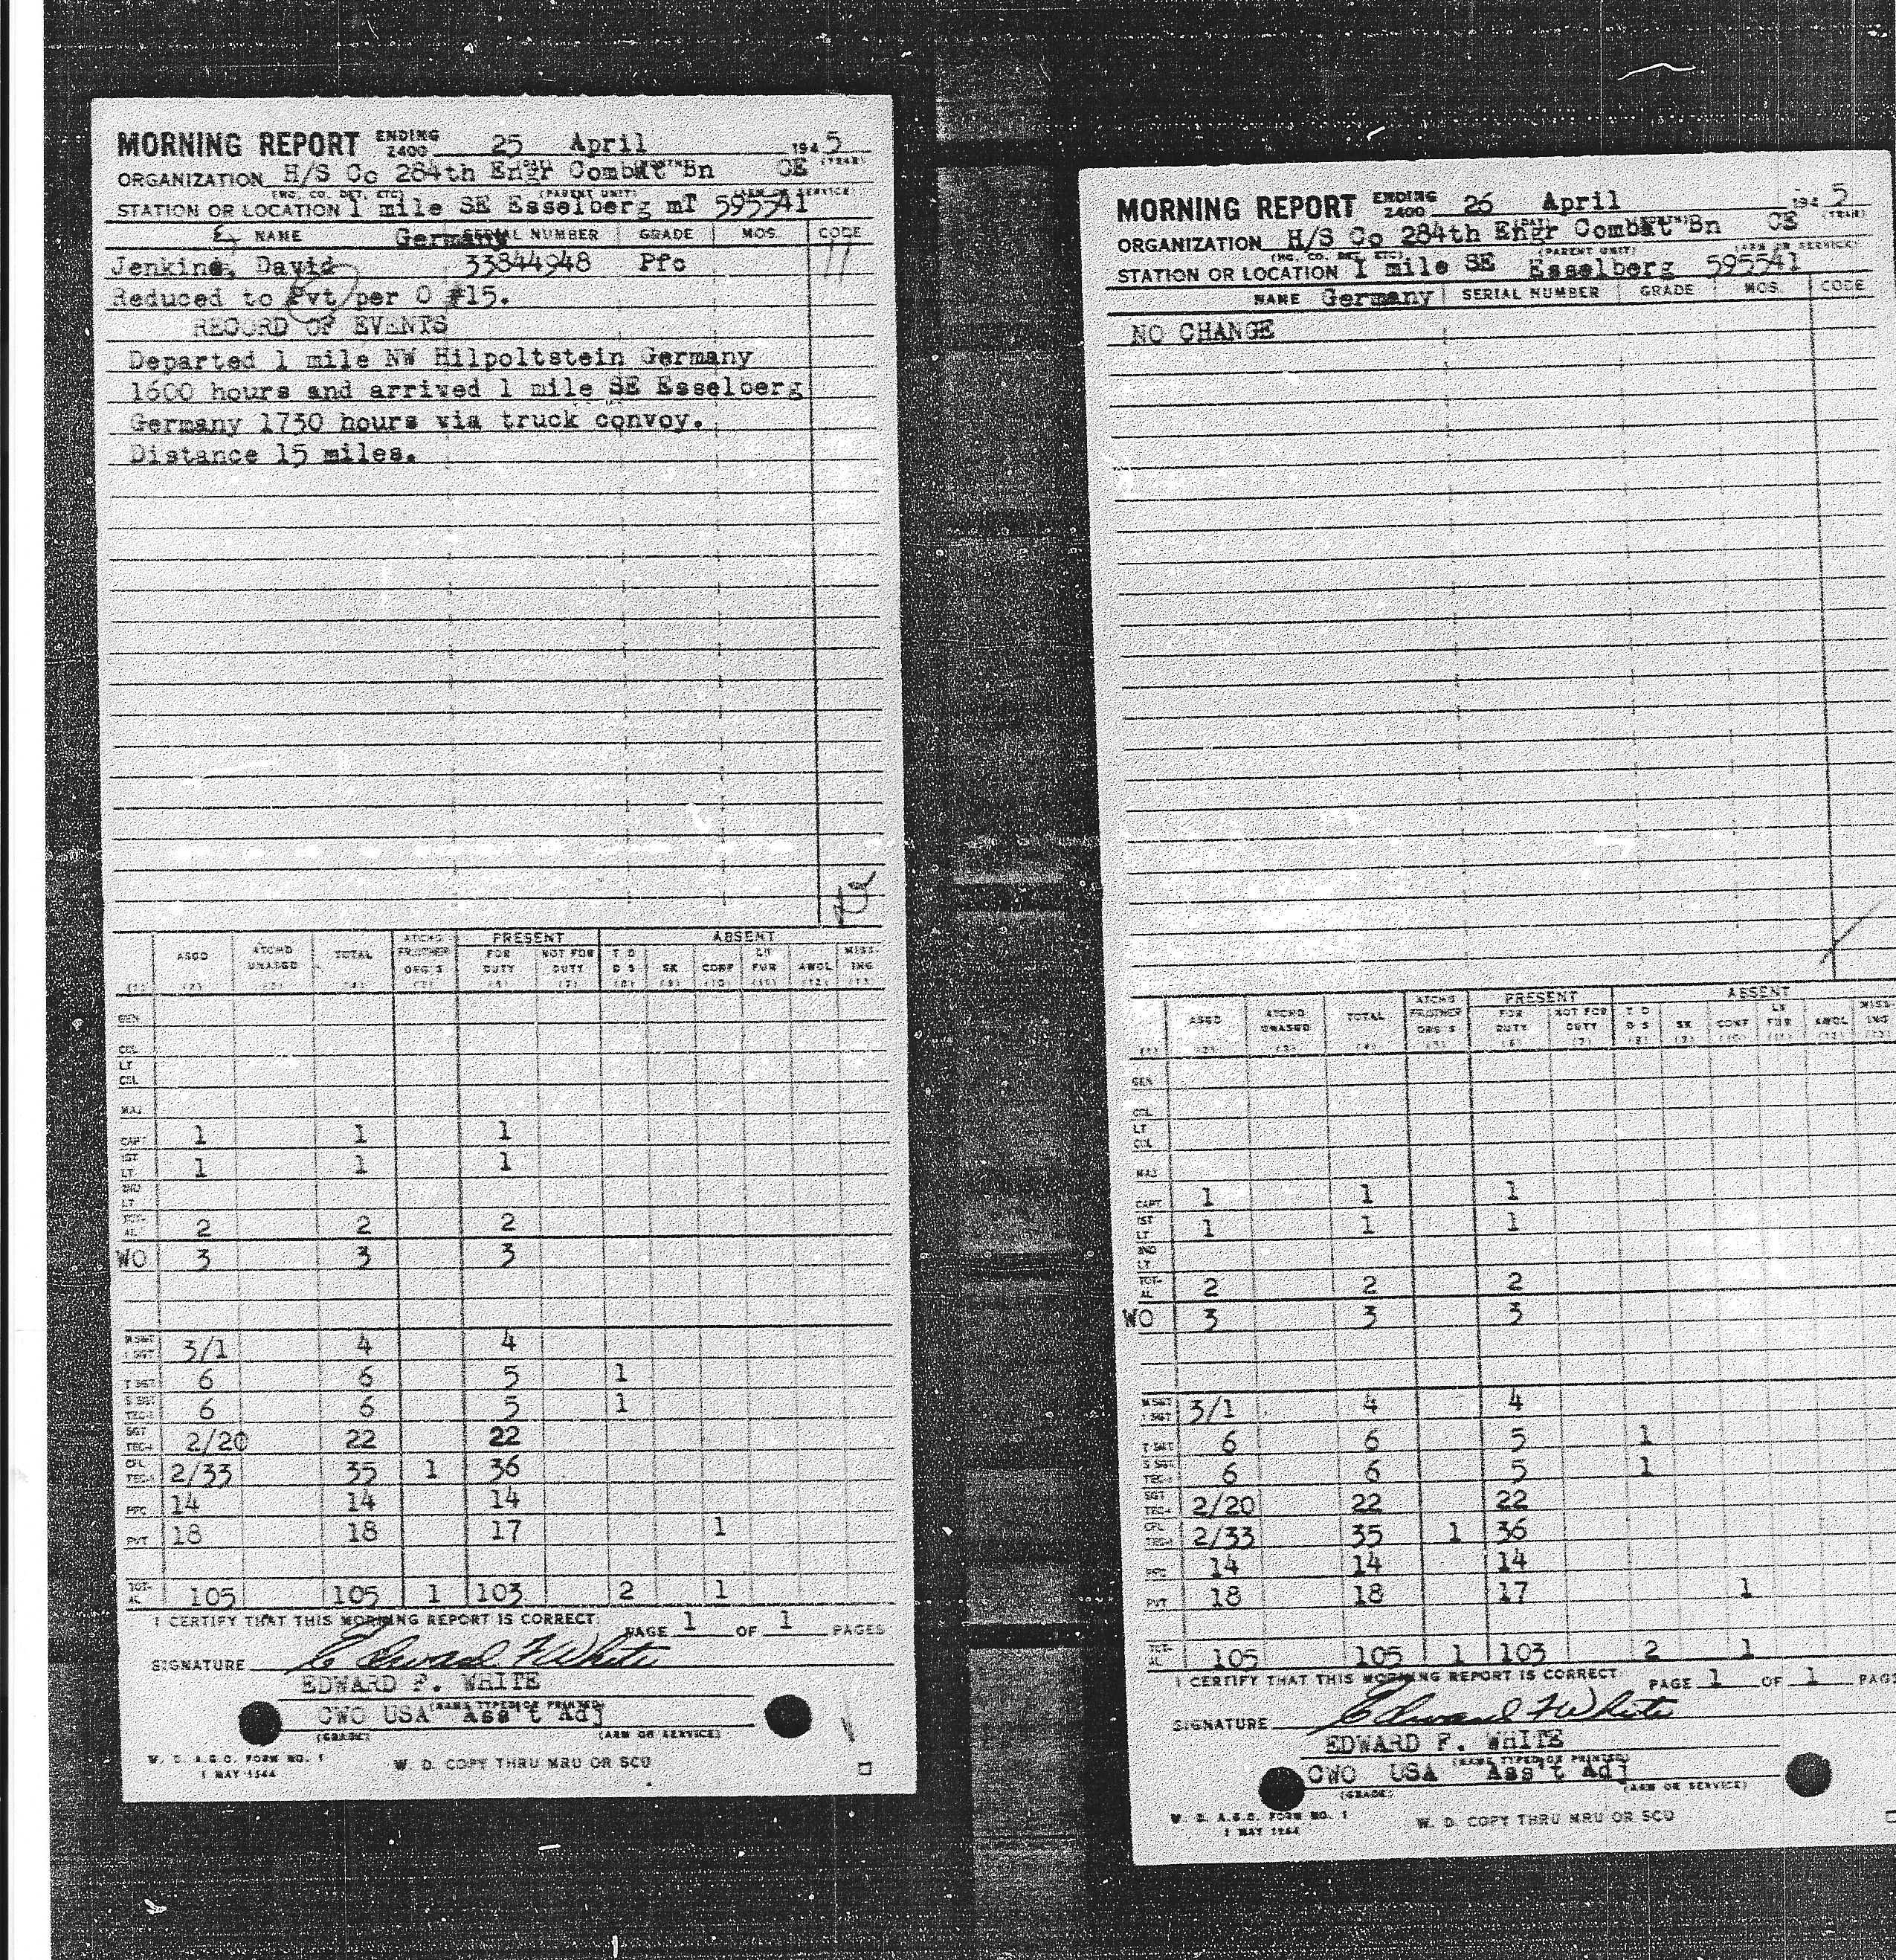 MORNING REPORT ENDING 2400 25 April 1945
ORGANIZATION H/S Co 284th Engr Combat Bn CE
STATION OR LOCATION 1 mile SE Esselberg mT 595541
NAME Germany SERIAL NUMBER GRADE MOS. CODE
Jenkins, David 33844948 Pfc 11
Reduced to Pvt per O #15.
RECORD OF EVENTS
Departed 1 mile NW Hilpoltstein Germany
1600 hours and arrived 1 mile SE Esselberg
Germany 1730 hours via truck convoy.
Distance 15 miles.
ASGD ATCHD UNASGD TOTAL ATCHD FR OTHER ORG'S PRESENT FOR DUTY NOT FOR DUTY ABSENT T D D S SK CONF LV FUR AWOL MISSING
(1) (2) (3) (4) (5) (6) (7) (8) (9) (10) (11) (12) (13)
GEN
COL
LT COL
MAJ
CAPT 1 1 1
1ST LT 1 1 1
2ND LT
TOTAL 2 2 2
WO 3 3 3
M SGT 1 SGT 3/1 4 4
T SGT 6 6 5 1
S SGT TEC-3 6 6 5 1
SGT TEC-4 2/20 22 22
CPL TEC-5 2/33 35 1 36
PFC 14 14 14
PVT 18 18 17 1
TOTAL 105 105 1 103 2 1
I CERTIFY THAT THIS MORNING REPORT IS CORRECT. PAGE 1 OF 1 PAGES
SIGNATURE Edward F White
EDWARD F. WHITE
(NAME TYPED OR PRINTED)
CWO USA Ass't Adj
(GRADE) (ARM OR SERVICE)
W. D. A.G.O. FORM NO. 1
1 MAY 1944
W. D. COPY THRU MRU OR SCU
MORNING REPORT ENDING 2400 26 April 1945
ORGANIZATION H/S Co 284th Engr Combat Bn CE
STATION OR LOCATION 1 mile SE Esselberg 595541
NAME Germany SERIAL NUMBER GRADE MOS. CODE
NO CHANGE
ASGD ATCHD UNASGD TOTAL ATCHD FR OTHER ORG'S PRESENT FOR DUTY NOT FOR DUTY ABSENT T D D S SK CONF LV FUR AWOL MISSING
(1) (2) (3) (4) (5) (6) (7) (8) (9) (10) (11) (12) (13)
GEN
COL
LT COL
MAJ
CAPT 1 1 1
1ST LT 1 1 1
2ND LT
TOTAL 2 2 2
WO 3 3 3
M SGT 1 SGT 3/1 4 4
T SGT 6 6 5 1
S SGT TEC-3 6 6 5 1
SGT TEC-4 2/20 22 22
CPL TEC-5 2/33 35 1 36
PFC 14 14 14
PVT 18 18 17 1
TOTAL 105 105 1 103 2 1
I CERTIFY THAT THIS MORNING REPORT IS CORRECT. PAGE 1 OF 1 PAG
SIGNATURE Edward F White
EDWARD F. WHITE
(NAME TYPED OR PRINTED)
CWO USA Ass't Adj
(GRADE) (ARM OR SERVICE)
W. D. A.G.O. FORM NO. 1
1 MAY 1944
W. D. COPY THRU MRU OR SCU